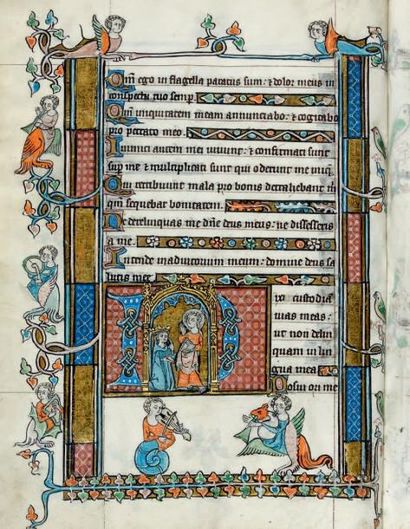 Qm̄ ego in flagella paratus sum: & dolor meus in
conspectu tuo semp.
Qm̄ iniquitatem meam annunciabo: & cogitabo
pro peccato meo.
Inimici autem mei uiuunt: & confirmati sunt
sup me & multiplicati sunt qui oderunt me iniq̄.
Qui retribuunt mala pro bonis detrahebant m̄
qm̄ sequebar bonitatem.
Ne derelinquas me dn̄e deus meus: ne discesseris
a me.
Intende in adiutorium meum: domine deus sa
lutis mee
ixi custodiā
uias meas:
ut non delin
quam in lin
gua mea
Posui ori me